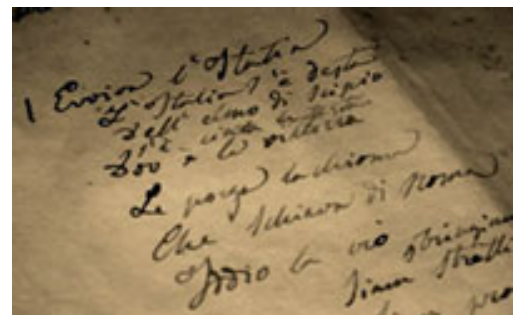 1 Evviva l'Italia
L'Italia s'è desta
Dell' elmo di Scipio
S'è cinta la testa
Dov' è la vittoria
Le porga la chioma
Che schiava di Roma
Iddio la creò
Siam